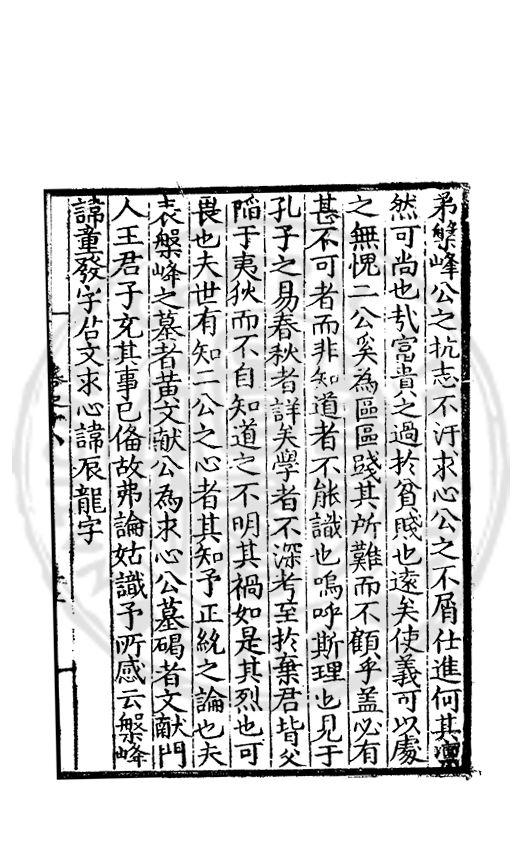 弟槃峰公之抗志不汙求心公之不屑仕進何其
然可尚也㢤富貴之過於貧賤也遠矣使義可以處
之無愧二公奚為區區踐其所難而不顧乎盖必有
甚不可者而非知道者不能識也嗚呼斯理也見于
孔子之易春秋者詳矣學者不深考至於棄君背父
陷于夷狄而不自知道之不明其禍如是其烈也可
畏也夫世有知二公之心者其知予正統之論也夫
表槃峰之墓者黄文獻公為求心公墓碣者文獻門
人王君子充其事已俻故弗論姑識予所感云槃峰
諱童發字岩文求心諱辰龍字